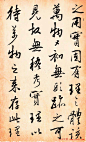 之用實而有理之體該
萬物之初無形跡之可
見故無極者實理以
待萬物之来在此理